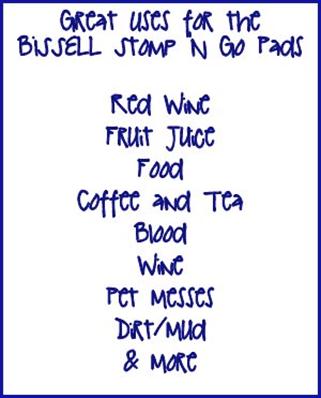 Great uses for the
BiSSELL Stomp 'N Go Pads
Red Wine
Fruit Juice
Food
Coffee and Tea
Blood
Wine
Pet Messes
Dirt/Mud
& More